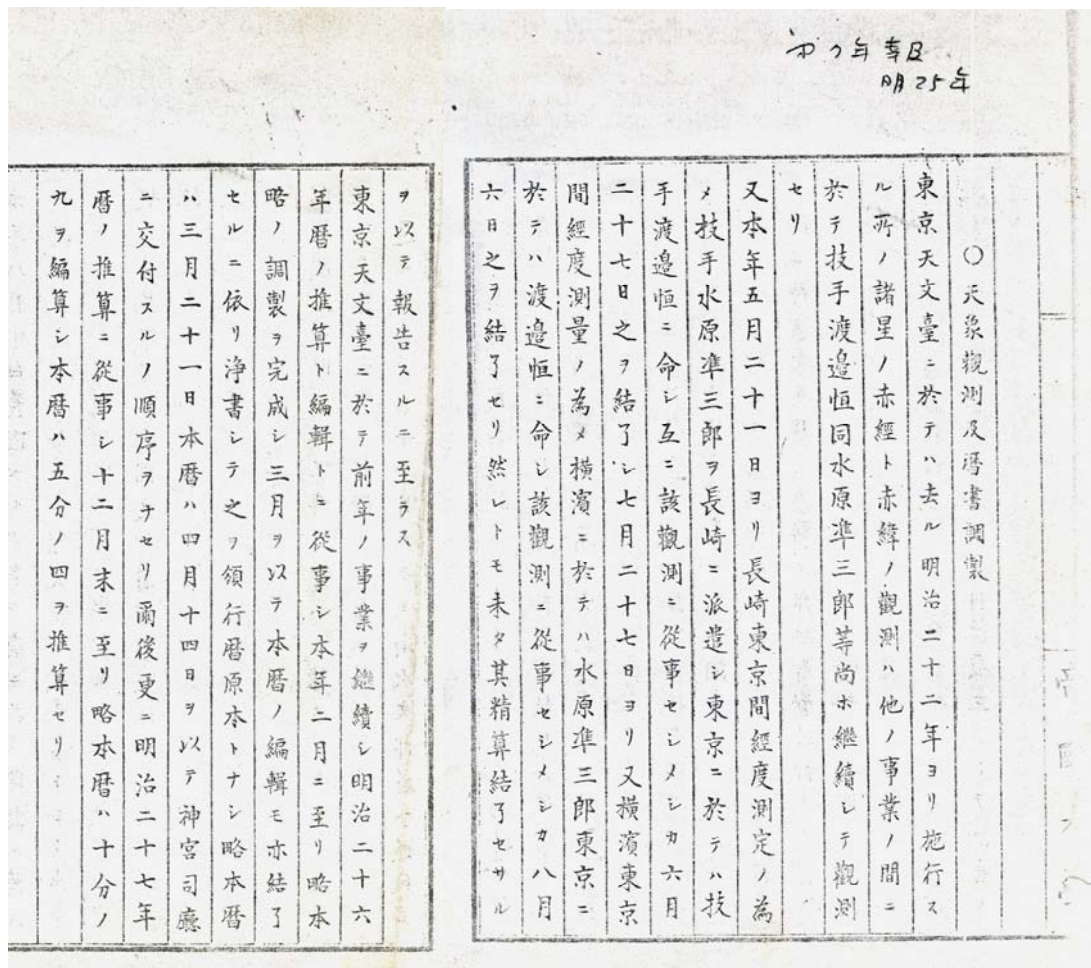 明25年
○天象觀測及暦書調製
東京天文臺ニ於テハ去ル明治二十二年ヨリ施行ス
ル所ノ諸星ノ赤經ト赤緯ノ觀測ハ他ノ事業ノ間ニ
於テ技手渡邉恒同水原準三郎等尚ホ繼續シテ觀測
セリ
又本年五月二十一日ヨリ長崎東京間經度測定ノ為
メ技手水原準三郎ヲ長崎ニ派遣シ東京ニ於テハ技
手渡邉恒ニ命シ互ニ該觀測ニ從事セシメシカ六月
二十七日之ヲ結了シ七月二十七日ヨリ又横濱東京
間經度測量ノ為メ横濱ニ於テハ水原準三郎東京ニ
於テハ渡邉恒ニ命シ該觀測ニ從事セシメシカ八月
六日之ヲ結了セリ然レトモ未タ其精算結了セサル
ヲ以テ報告スルニ至ラス
東京天文臺ニ於テ前年ノ事業ヲ継續シ明治二十六
年暦ノ推算ト編輯トニ從事シ本年二月ニ至リ略本
略ノ調製ヲ完成シ三月ヲ以テ本暦ノ編輯モ亦結了
セルニ依リ浄書シテ之ヲ頒行暦原本トナシ略本暦
ハ三月二十一日本暦ハ四月十四日ヲ以テ神宮司廳
ニ交付スルノ順序ヲナセリ爾後更ニ明治二十七年
暦ノ推算ニ從事シ十二月末ニ至リ略本暦ハ十分ノ
九ヲ編算シ本暦ハ五分ノ四ヲ推算セリ